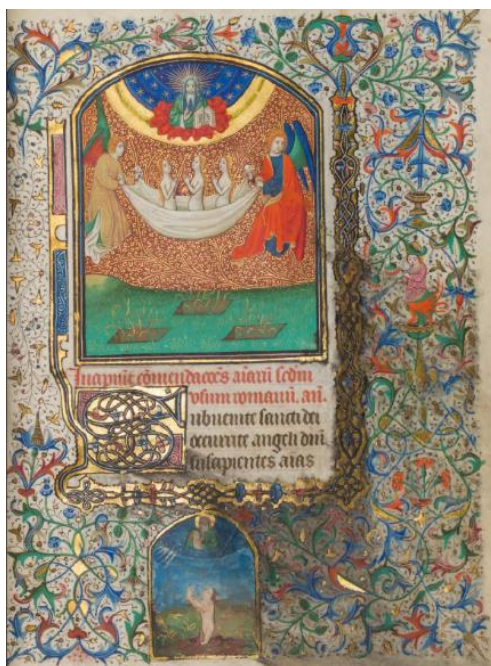 Incipiūt cōmendaccōs aīarū scdm
vsum romanū. añ.
Subuenite sancti dei
occurrite angeli dnī.
suscipientes aīas